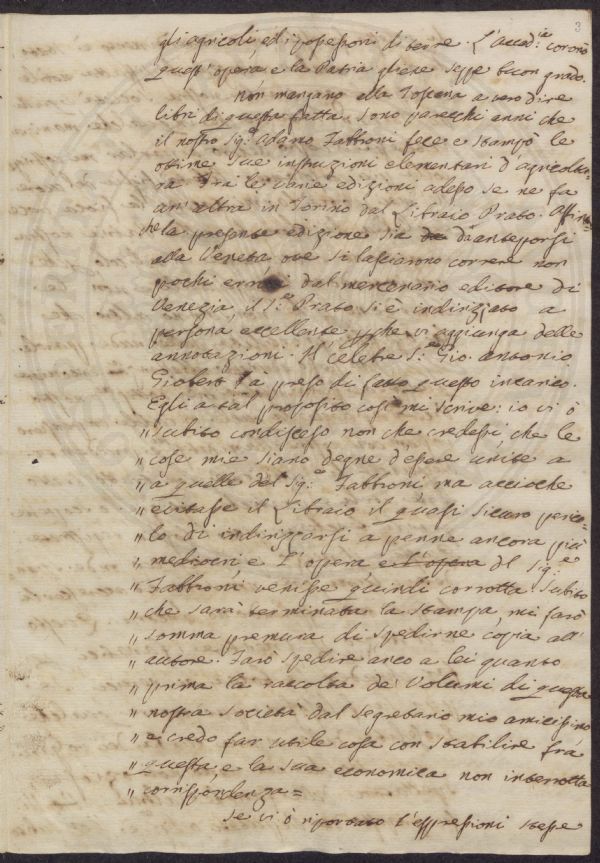 3
gli agricoli, ed i possessori di terre. L'Accad.ia coronò
quest'opera, e la Patria gliene seppe buon grado.
Non mancano alla Toscana a vero dire
libri di questa fatta. Sono parecchi anni che
il nostro Sig.e Adamo Fabbroni fece e stampò le
ottime sue instruzioni elementari d'agricoltu-
ra. Fra le varie edizioni adesso se ne fa
un'altra in Torino dal Libraio Prato. Affin-
chè la presente edizione sia da anteporsi
alla Veneta ove si lasciarono correre non
pochi errori dal mercenario editore di
Venezia, il S.r Prato si è indirizzato a
persona eccellente, che vi aggiunga delle
annotazioni. Il celebre S.r Gio. Antonio
Giobert à preso di fatto questo incarico.
Egli a tal proposito così mi scrive: io vi ò
" subito condisceso non che credessi, che le
" cose mie siano degne d'essere unite a
" a quelle del Sig.e Fabbroni ma acciochè
" evitasse il Libraio il quasi sicuro perico-
" lo di indirizzarsi a penne ancora più
" mediocri, e l'opera e l'opera del Sig.e
" Fabbroni venisse quindi corrotta. Subito
" che sarà terminata la stampa, mi farò
" somma premura di spedirne copia all'
" autore. Farò spedire anco a lei quanto
" prima la raccolta de' Volumi di questa
" nostra società dal segretario mio amicissimo
" e credo far utile cosa con stabilire frà
" questa, e la sua economica non interrotta
" corrispondenza=
Se vi ò riportato l'espressioni stesse